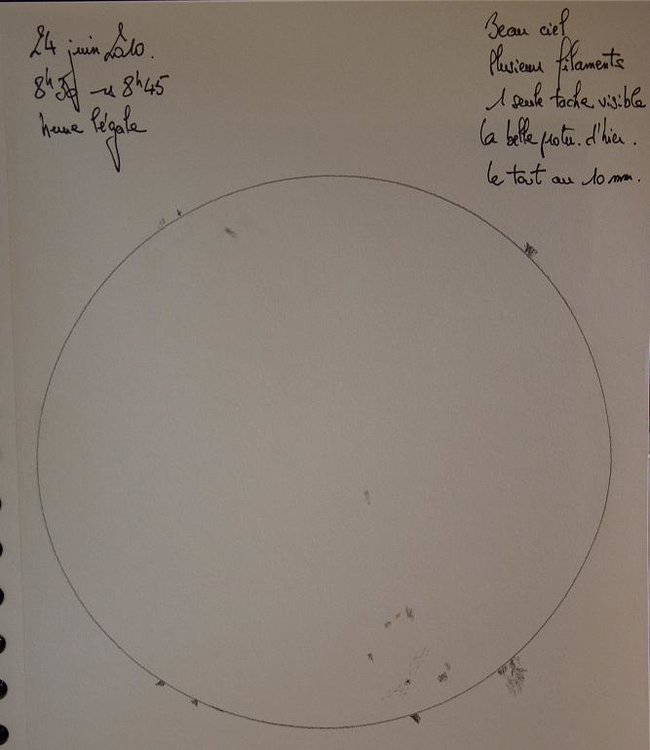 24 juin 2010.
8h30 → 8h45
heure légale
Beau ciel
Plusieurs filaments
1 seule tache visible
la belle protu. d'hier.
le tout au 10 mm.